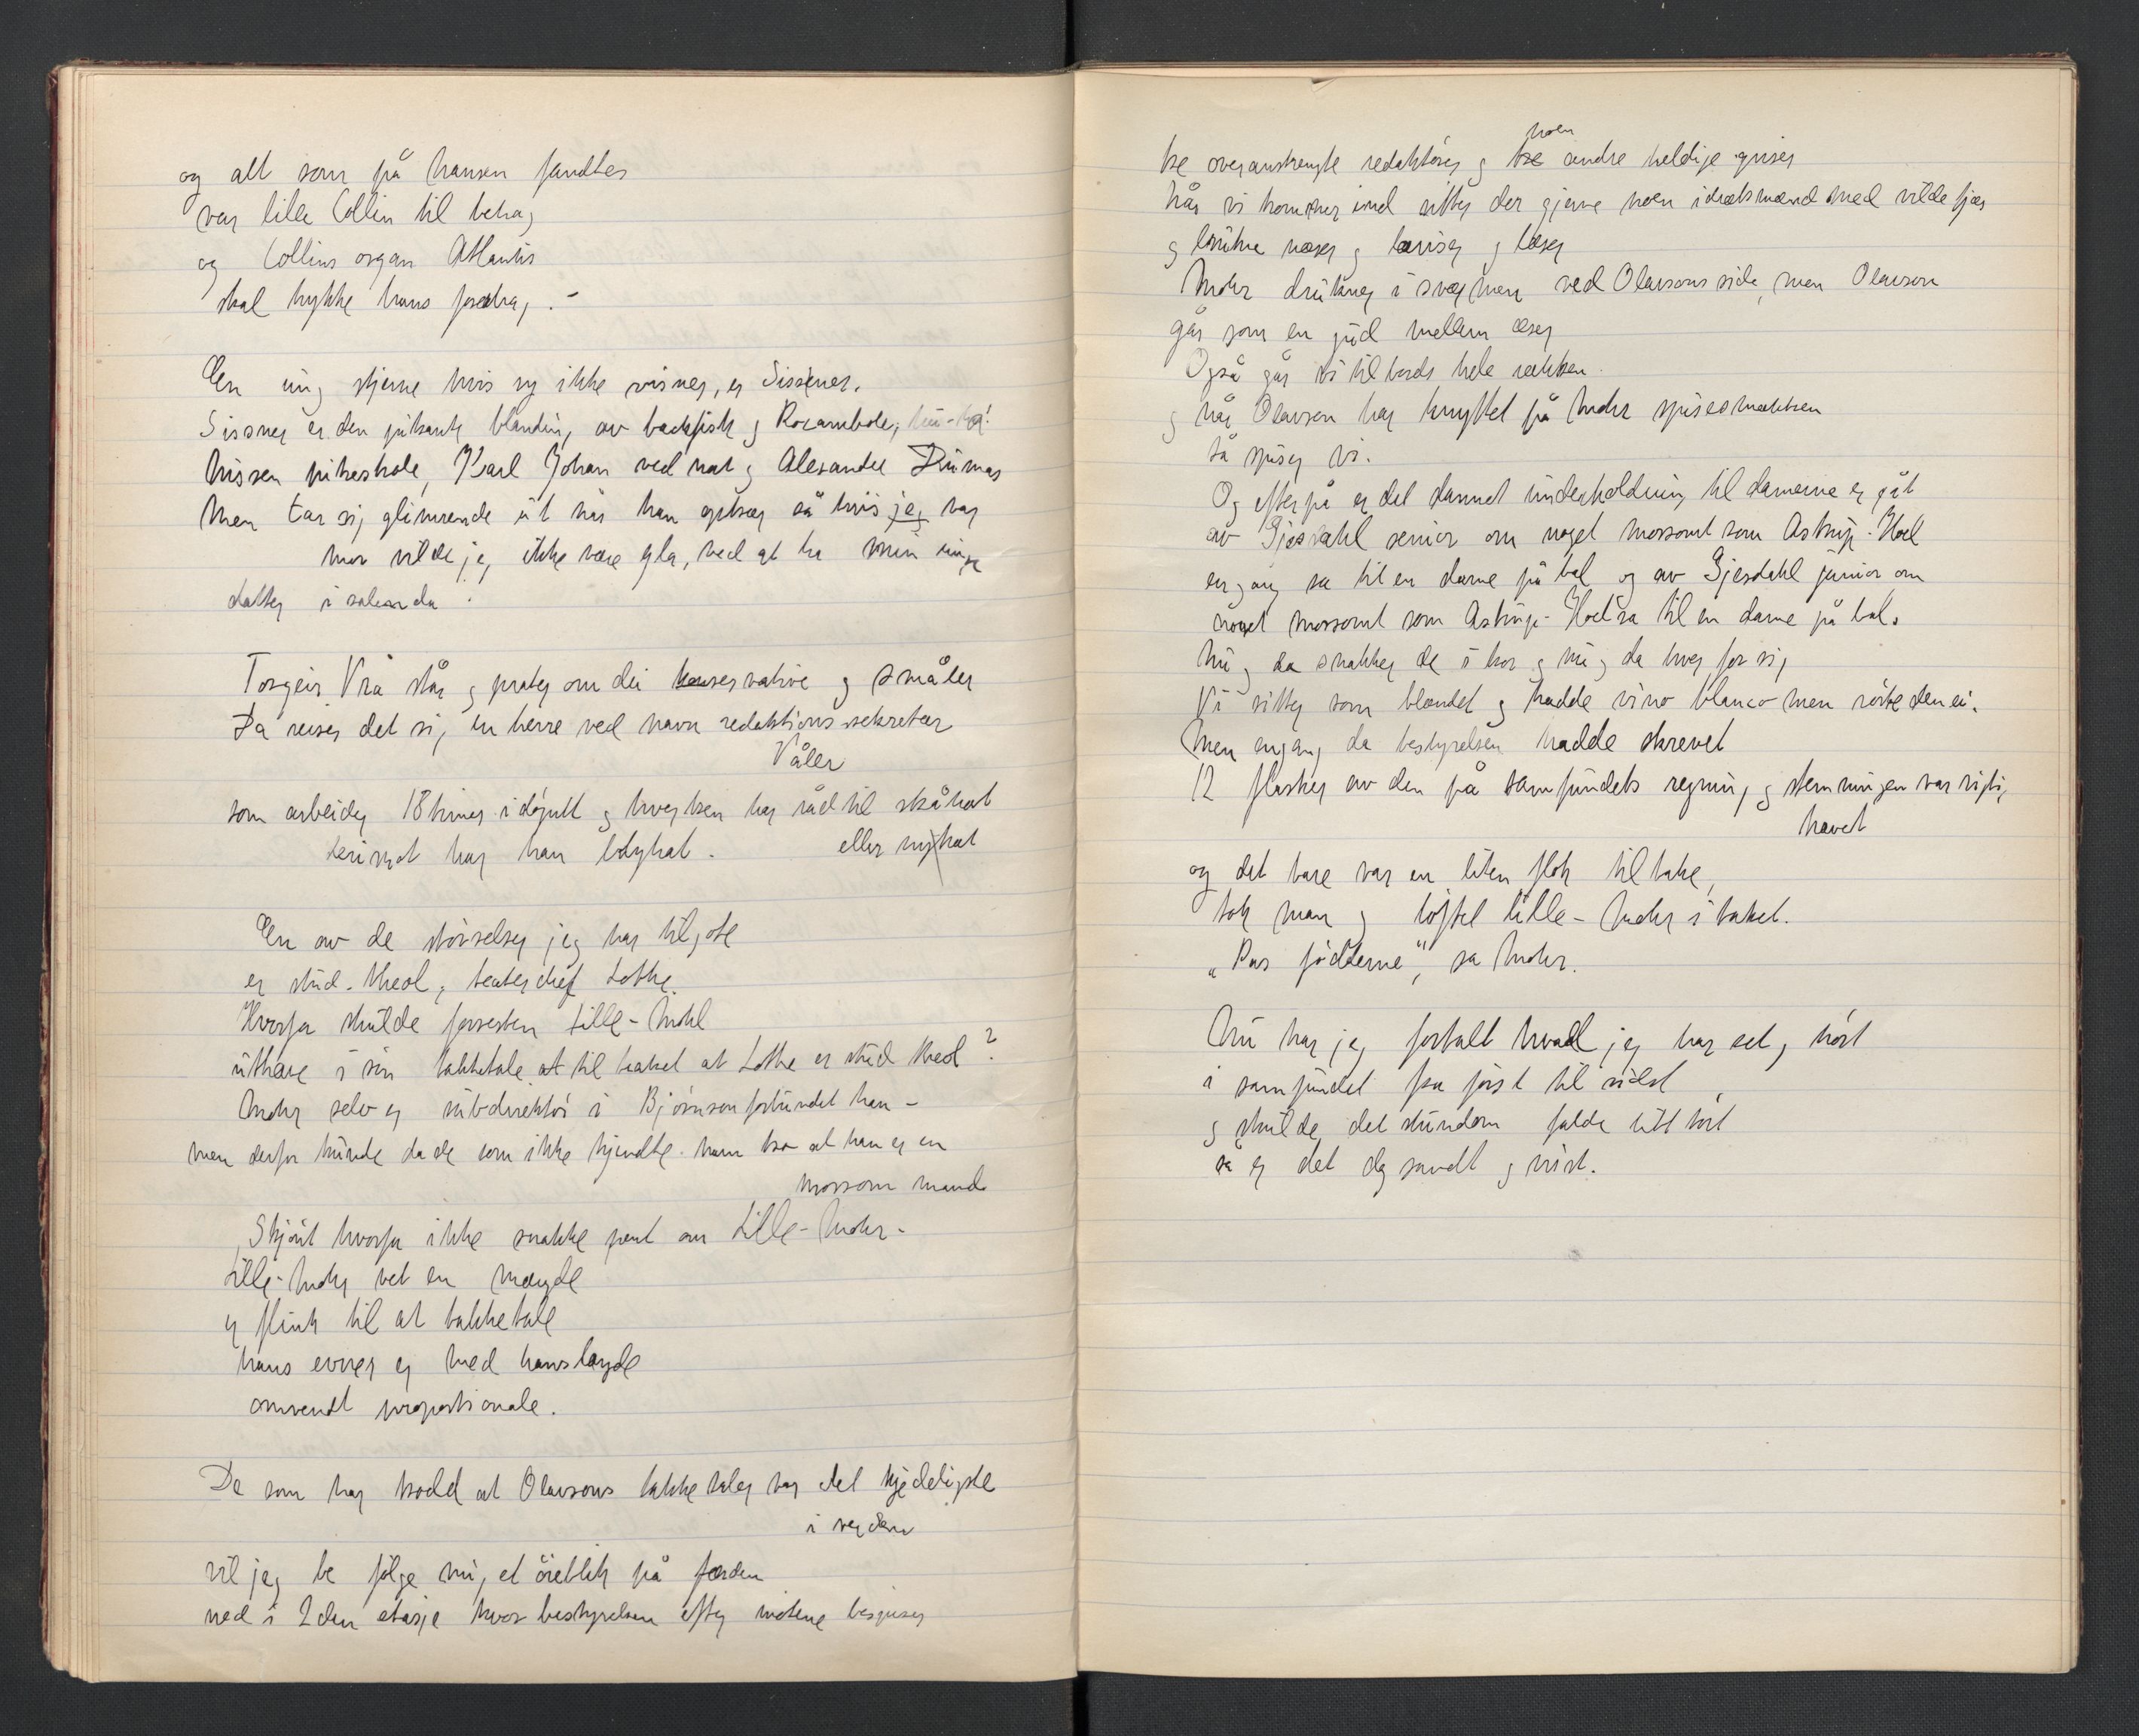 og alt som på hansen fandtes
var lille Collin til behag
og Collins organ Atlantis
skal trykke hans foredrag. –
En ung stjerne hvis ry ikke visner, er Sissener.
Sissner er den pikante blanding av backfisch og Rocambole,
Nissen pikeskole, Karl Johan ved nat og Alexandre Dumas
Men tar sig glimrende ut når han optrær så hvis jeg var
mor vilde jeg ikke være gla, ved at ha min unge
datter i salen da.
Torgeir Vraa står og prater om dei konservative og småler
Da reiser det sig en herre ved navn redaktionssekretær
Våler
som arbeider 18 timer i døgnet og hverken har råd til skåhat
eller nyhat
derimot har han loyhat.
En av de størrelser jeg har tilgode
er stud. theol. og teaterchef Lothe.
Hvorfor skulde forresten Lille-Mohr
uthæve i sin takketale at til teatret at Lothe er stud theol?
Mohr selv er subdirektør i Bjørnsonforbundet han –
men derfor kunde da de som ikke kjendte ham tro at han er en
morsom mand
Skjønt hvorfor ikke snakke pent om Lille-Mohr –
Lille-Mohr vet en mængde
er flink til at takketale
hans evner er med hans længde
omvendt proportionale.
De som har trodd at Olavsons takketaler var det kjedeligste
i verden
vil jeg be følge mig et øieblik på færden
ned i 2den etasje hvor bestyrelsen efter møtene bespiser
tre overanstrengte redaktører og tre noen andre heldige griser
Når vi kommer ind sitter der gjerne noen idrætsmænd med vilde fjæs
og brukne næser og aviser og læser
Mohr drukner i sværmen ved Olavsons side, men Olavson
går som en gud mellem æser
Også går vi til bords hele rækken.
og når Olavson har knyttet på Mohr spisesmækken
så spiser vi.
Og efterpå er det dannet underholdning til damerne er gåt
av Gjesdahl senior om noget morsomt som Astrup-Hoel
engang sa til en dame på bal og av Gjesdahl junior om
noget morsomt som Astrup-Hoel sa til en dame på bal.
Nu og da snakker de i kor og nu og da hver for sig
Vi sitter som blændet og hadde vino blanco men rørte den ei.
Men engang da bestyrelsen hadde skrevet
12 flasker av den på samfundets regning og stemningen var rigtig
hævet
og det bare var en liten flok tilbake,
tok man og løftet lille-Mohr i taket.
"Pas føtterne", sa Mohr.
Nu har jeg fortalt hvad jeg har set og hørt
i samfundet fra først til sidst,
og skulde det stundom falde litt tørt
så er det dog sandt og visst.